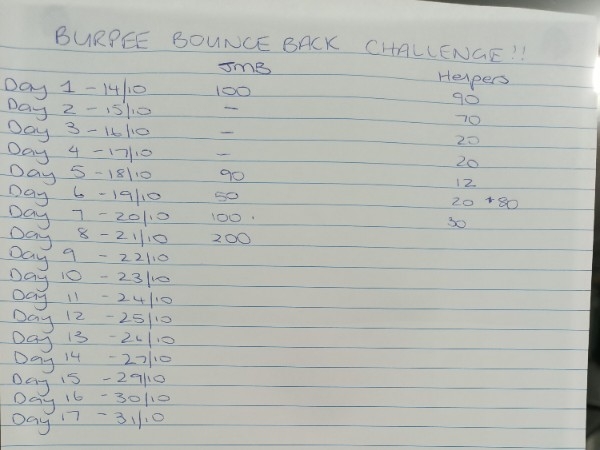 BURPEE BOUNCE BACK CHALLENGE!!
JMB Helpers
Day 1 - 14/10 100 90
Day 2 - 15/10 - 70
Day 3 - 16/10 - 20
Day 4 - 17/10 - 20
Day 5 - 18/10 90 12
Day 6 - 19/10 50 20 +80
Day 7 - 20/10 100. 30
Day 8 - 21/10 200
Day 9 - 22/10
Day 10 - 23/10
Day 11 - 24/10
Day 12 - 25/10
Day 13 - 26/10
Day 14 - 27/10
Day 15 - 29/10
Day 16 - 30/10
Day 17 - 31/10